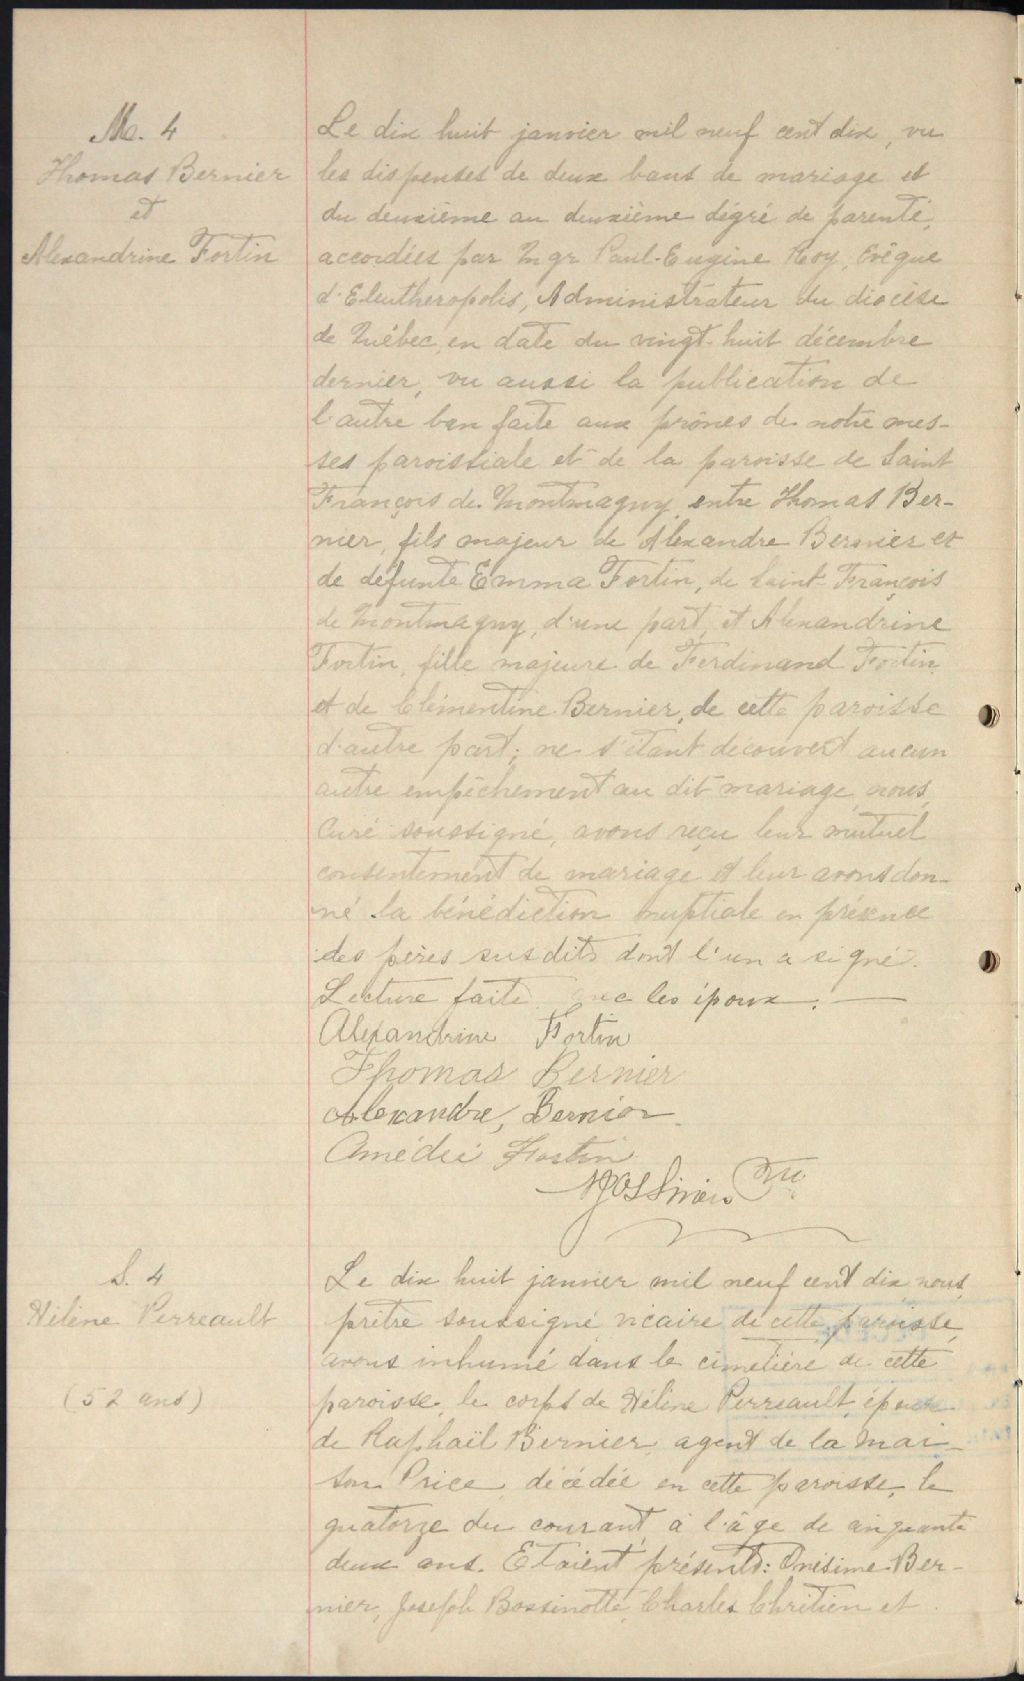 M. 4
Thomas Bernier
et
Alexandrine Fortin
Le dix huit janvier mil neuf cent dix, vu
les dispenses de deux bans de mariage et
du deuxième au deuxième dégré de parenté,
accordées par Mgr Paul-Eugène Roy, Evêque
d'Eleutheropolis, Administrateur du diocèse
de Québec, en date du vingt-huit décembre
dernier, vu aussi la publication de
l'autre ban faite aux prônes de notre mes-
ses paroissiale et de la paroisse de Saint
François de Montmagny, entre Thomas Ber-
nier, fils majeur de Alexandre Bernier et
de defunte Emma Fortin, de Saint-François
de Montmagny, d'une part, et Alexandrine
Fortin, fille majeure de Ferdinand Fortin
et de Clémentine Bernier, de cette paroisse
d'autre part; ne s'étant découvert aucun
autre empêchement au dit mariage, nous,
Curé soussigné, avons reçu leur mutuel
consentement de mariage et leur avons don-
né la bénédiction nuptiale en présence
des pères susdits dont l'un a signé.
Lecture faite les époux.
Alexandrine Fortin
Thomas Bernier
Alexandre, Bernier
Amédée Fortin
S. 4
Hélène Perreault
(52 ans)
Le dix huit janvier mil neuf cent dix, nous,
prêtre soussigné vicaire de cette paroisse,
avons inhumé dans le cimetière de cette
paroisse, le corps de Hélène Perreault, épouse
de Raphaël Bernier, agent de la Mai-
son Price, décédée en cette paroisse, le
quatorze du courant, à l'âge de cinquante
deux ans. Etaient présents: Onésime Ber-
nier, Joseph Bossinotte, Charles Chrétien et